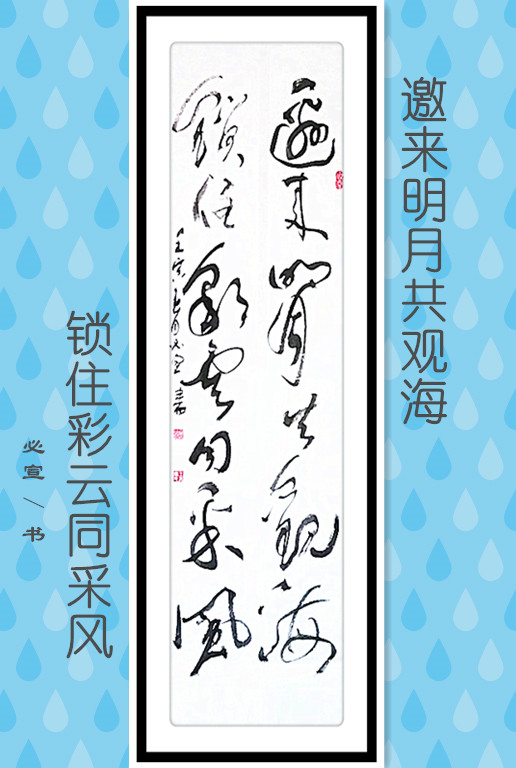 邀来明月共观海
邀来明月共觀海
鎖住彩雲同采風
壬寅
锁住彩云同采风
必宣/书